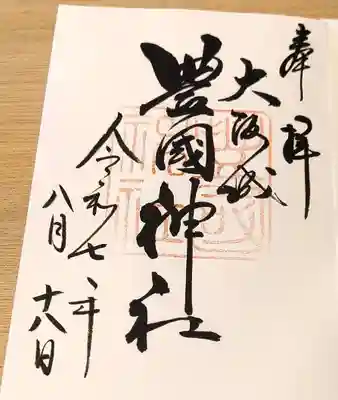 奉拝
大阪城
豊國神社
令和七年
八月 十八日